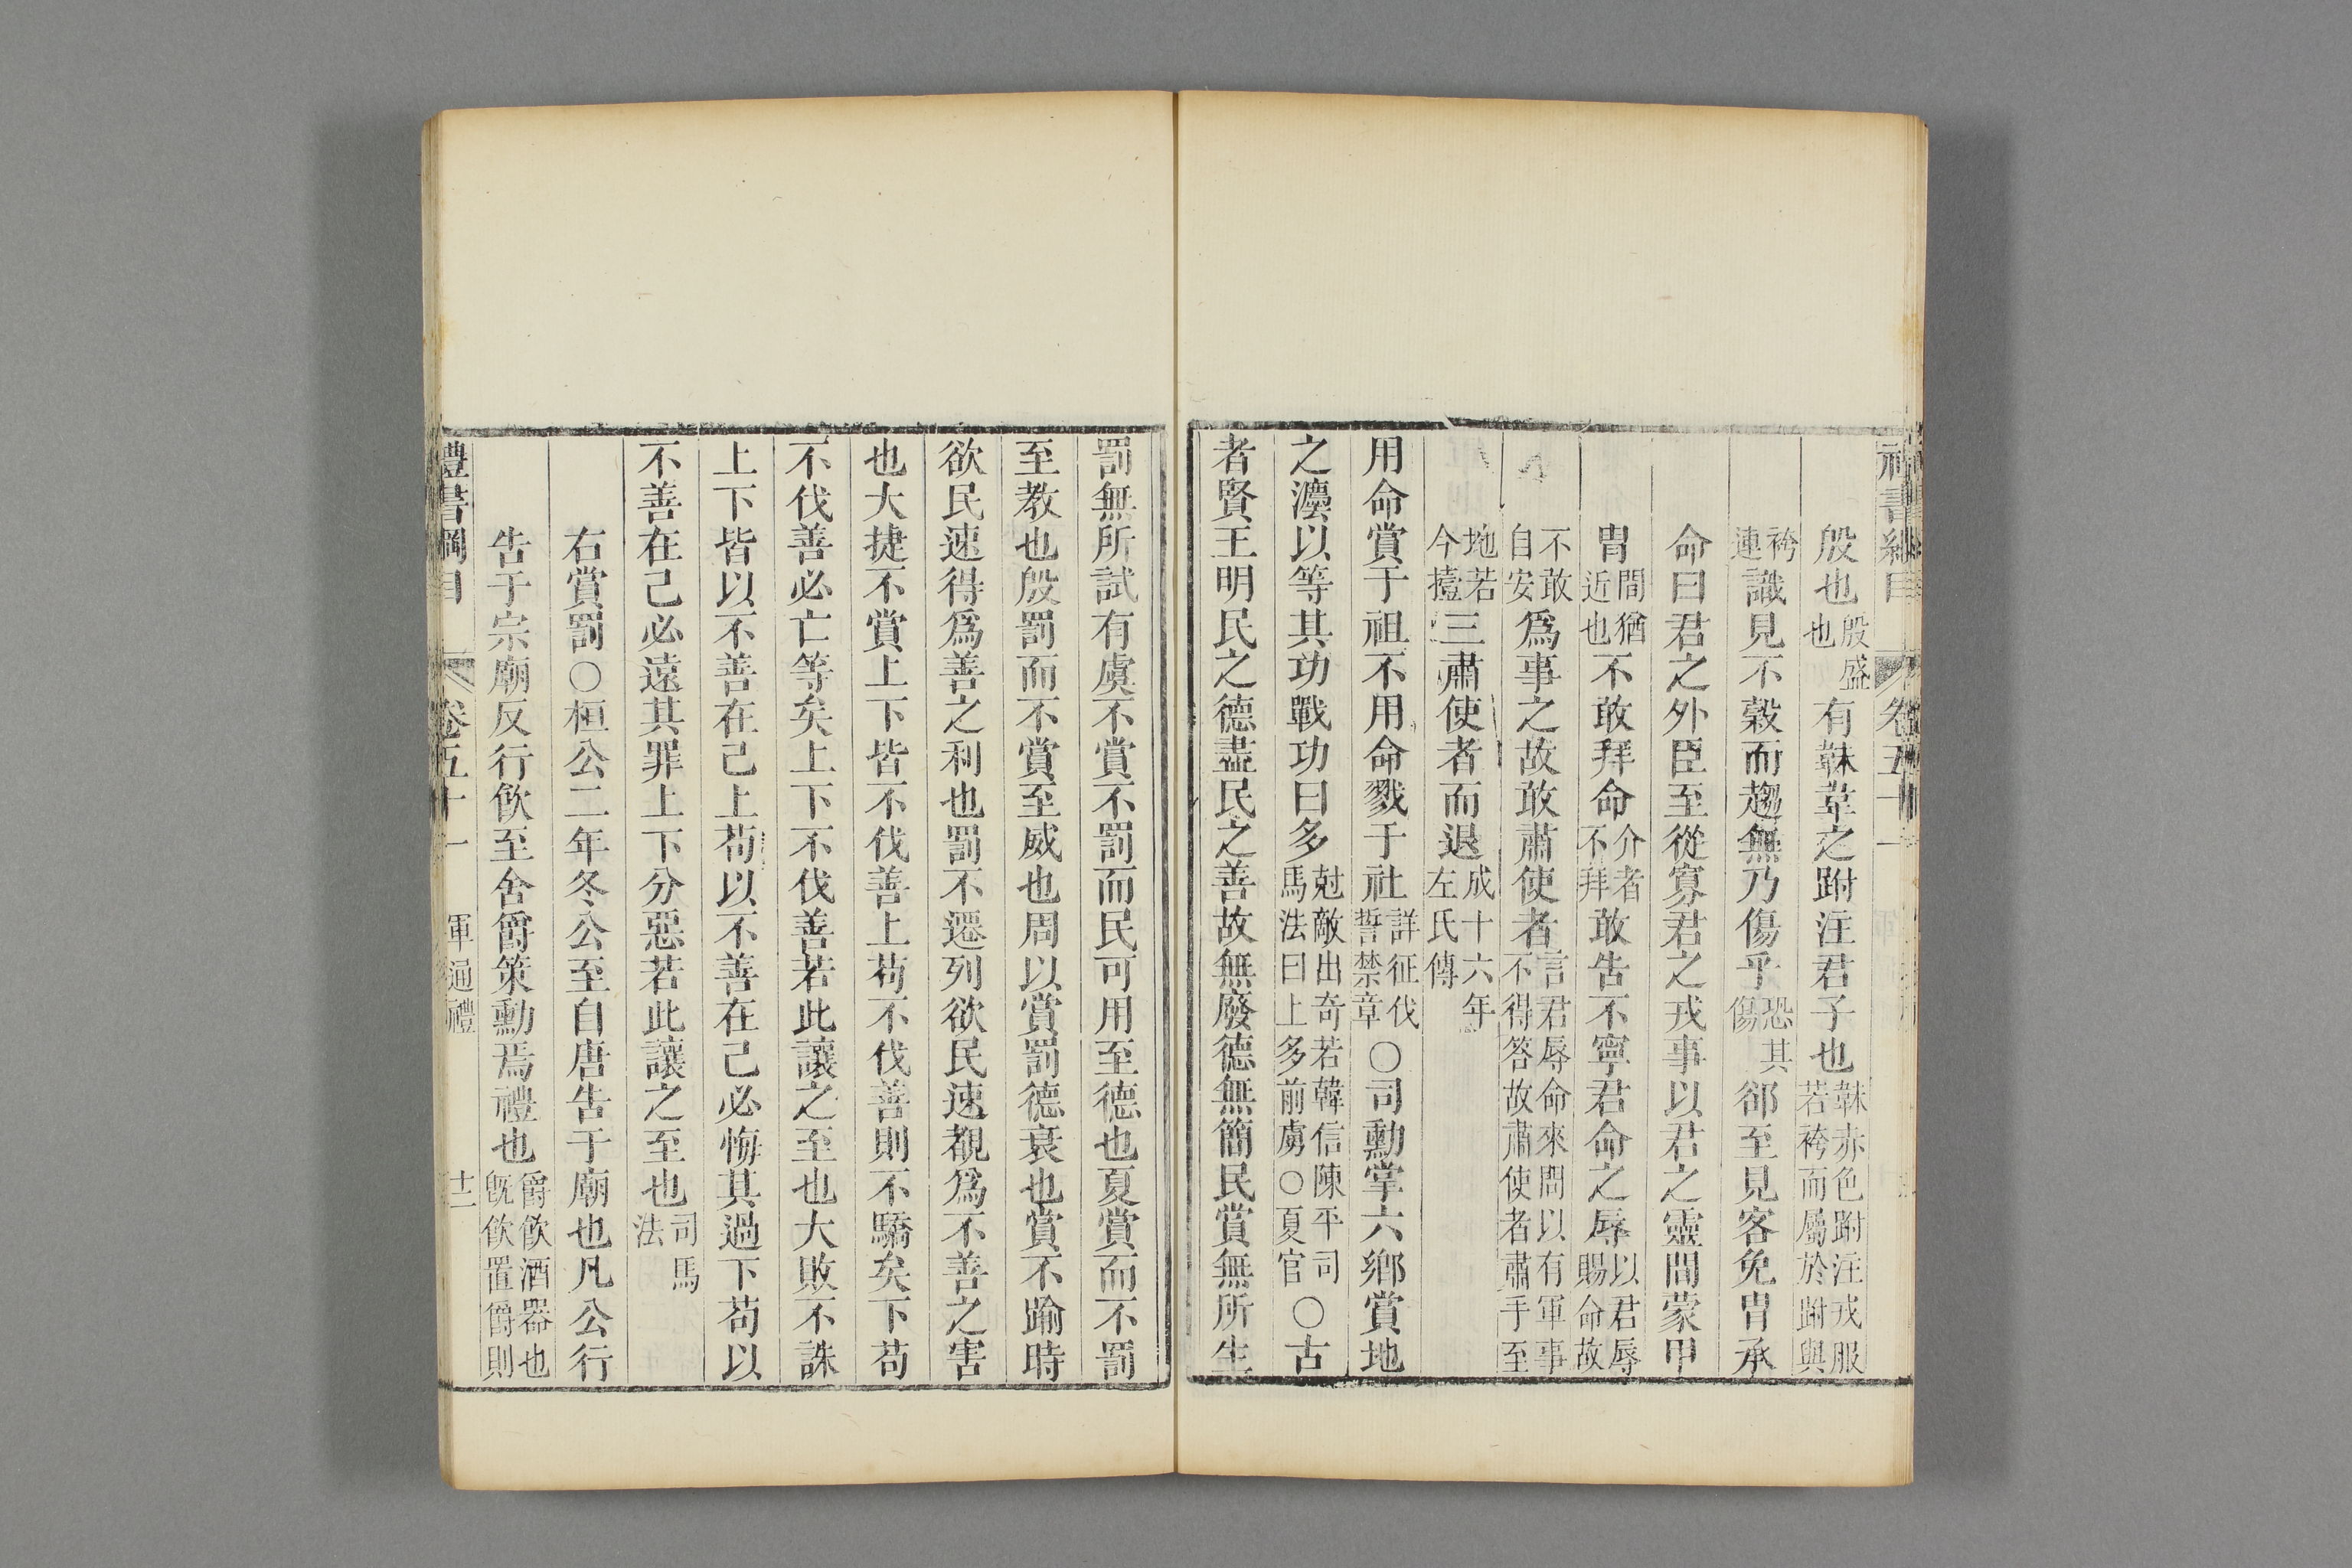 禮書綱目 卷五十一
殷也殷盛也有韎韋之跗注君子也韎赤色跗注戎服若袴而屬於跗與
袴連識見不穀而趨無乃傷乎恐其傷郤至見客免胄承
命曰君之外臣至從寡君之戎事以君之靈間蒙甲
胄間猶近也不敢拜命介者不拜敢告不寧君命之辱以君辱賜命故
不敢自安爲事之故敢肅使者言君辱命來問以有軍事不得答故肅使者肅手至
地若今撎三肅使者而退成十六年左氏傳
用命賞于祖不用命戮于社詳征伐誓禁章〇司勳掌六鄉賞地
之灋以等其功戰功曰多尅敵出奇若韓信陳平司馬法曰上多前虜〇夏官〇古
者賢王明民之德盡民之善故無廢德無簡民賞無所生
罰無所試有虞不賞不罰而民可用至德也夏賞而不罰
至教也殷罰而不賞至威也周以賞罰德衰也賞不踰時
欲民速得爲善之利也罰不遷列欲民速覩爲不善之害
也大捷不賞上下皆不伐善上苟不伐善則不驕矣下苟
不伐善必亡等矣上下不伐善若此讓之至也大敗不誅
上下皆以不善在己上苟以不善在己必悔其過下苟以
不善在己必遠其罪上下分惡若此讓之至也司馬法
右賞罰〇桓公二年冬公至自唐告于廟也凡公行
告于宗廟反行飲至舍爵策勳焉禮也爵飲酒器也旣飲置爵則
禮書綱目 卷五十一 軍通禮 十二